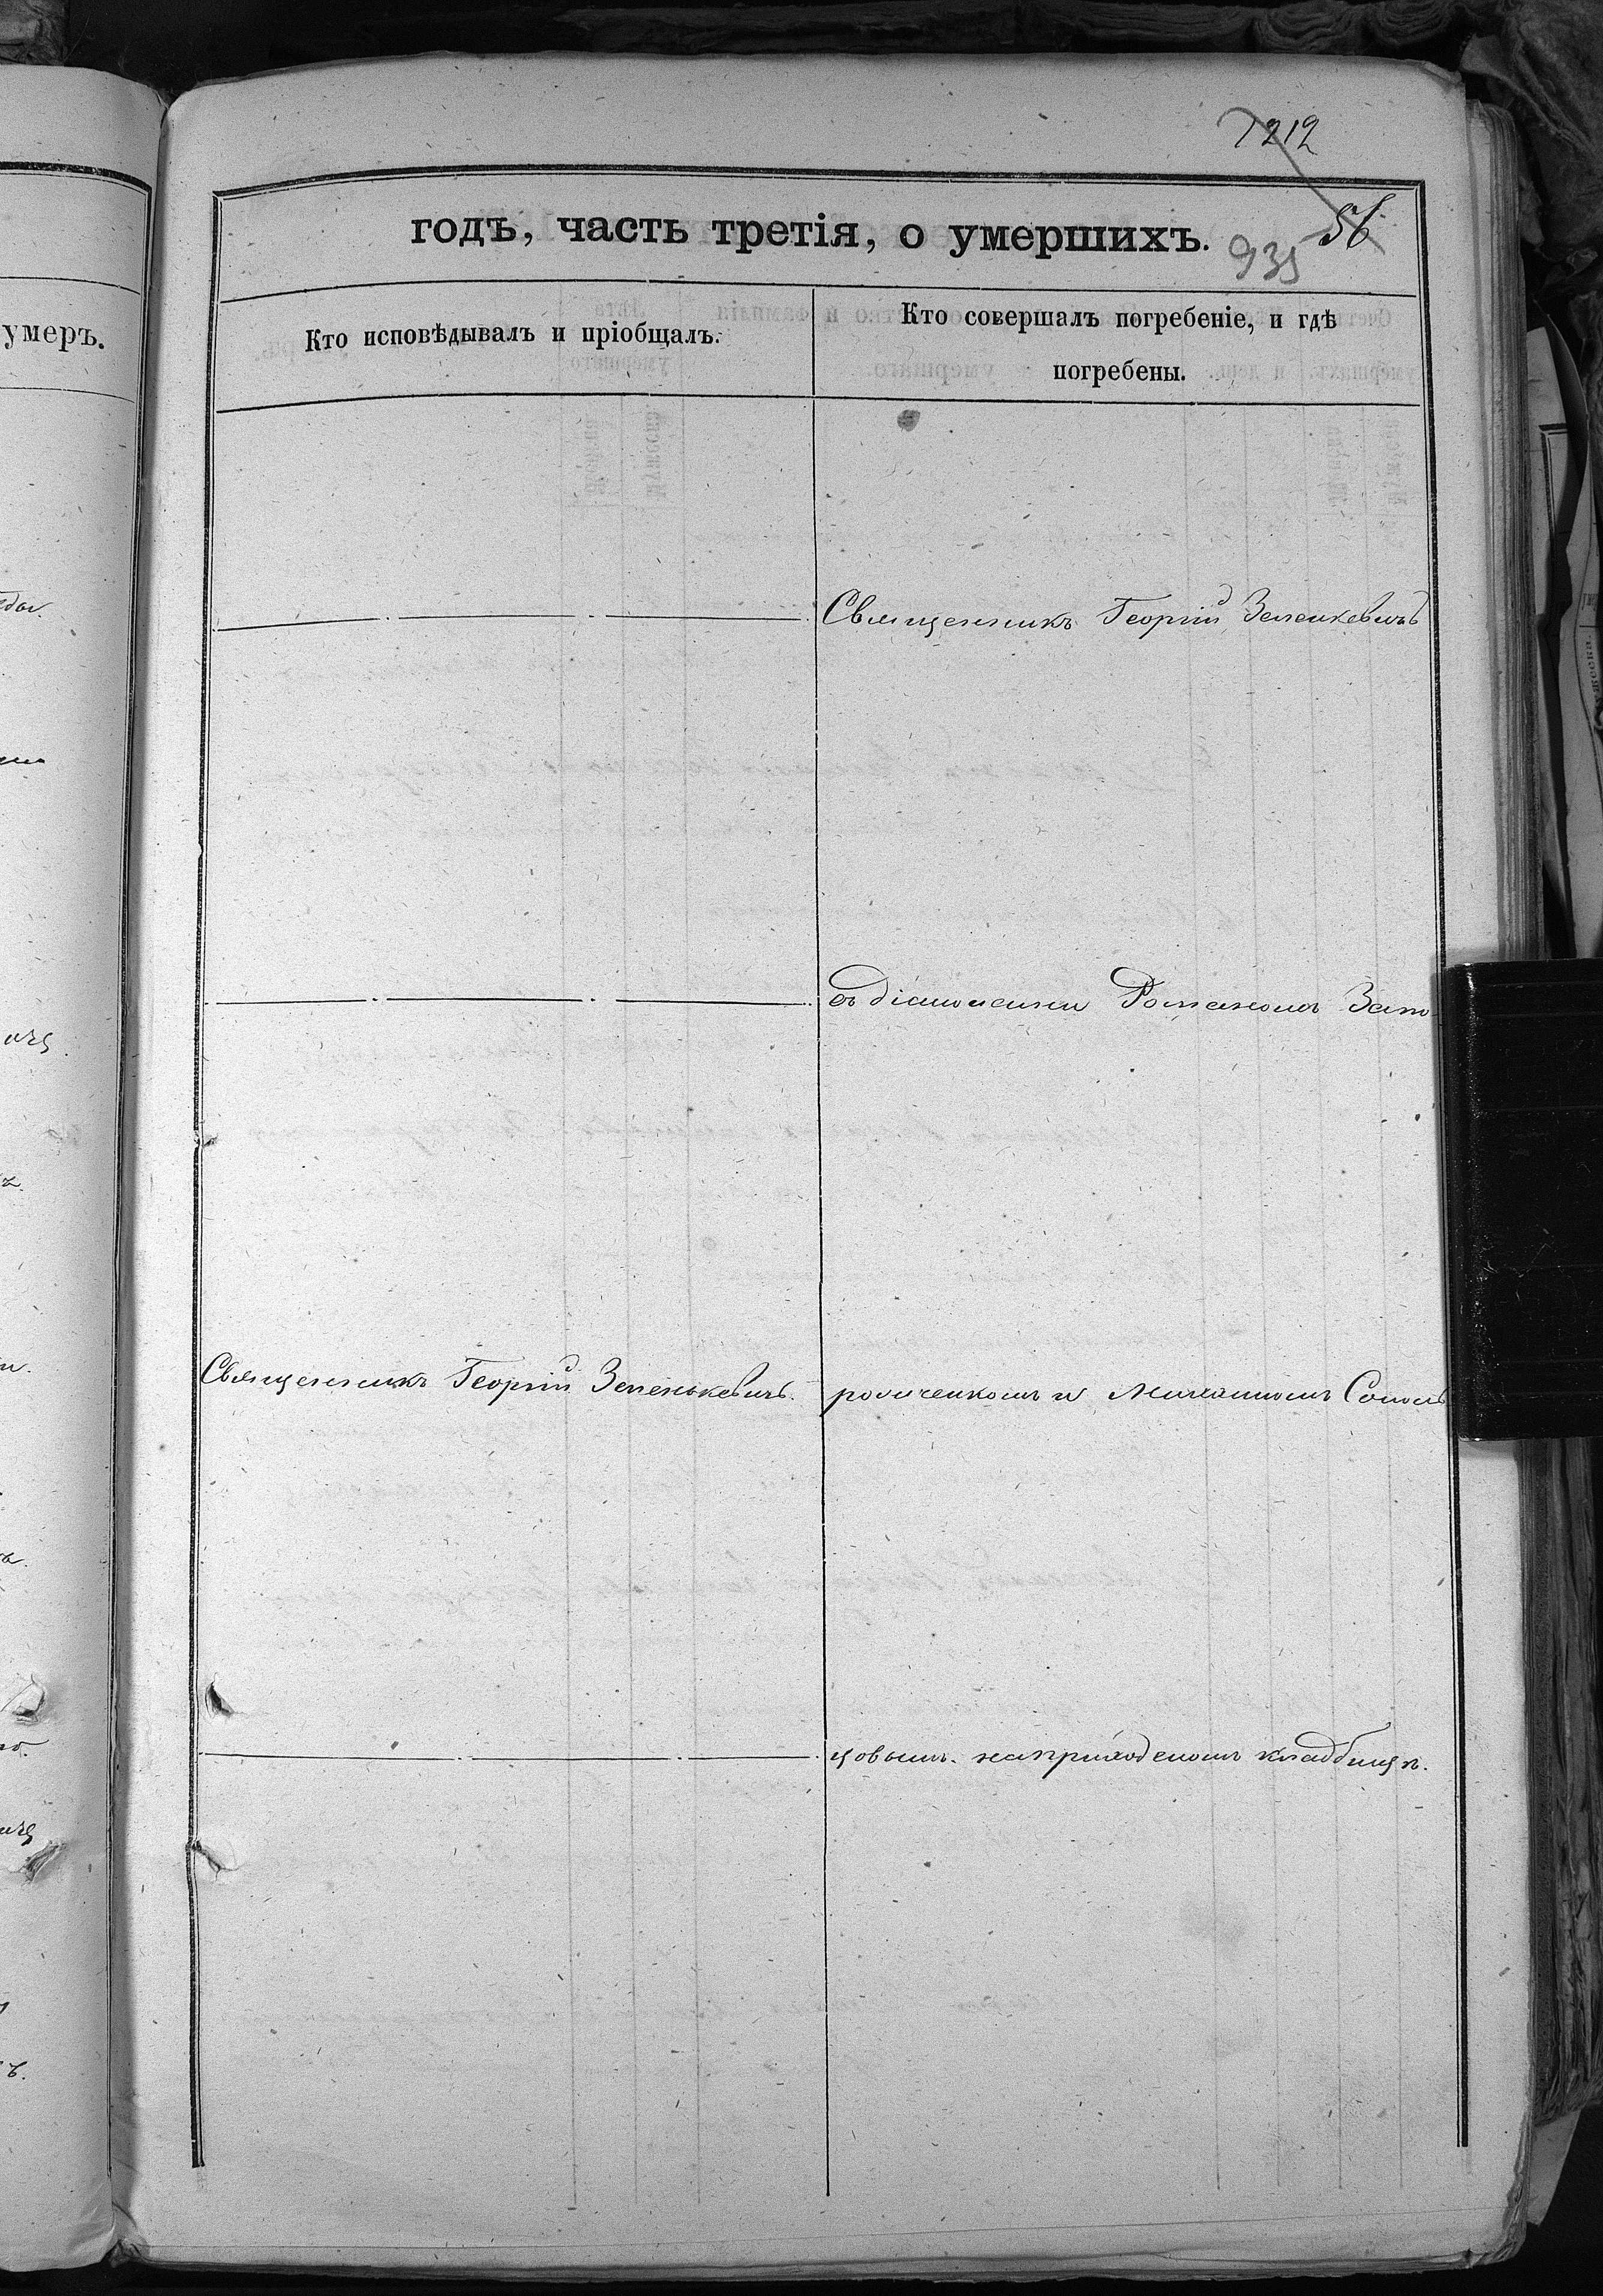 1212
годъ, часть третія, о умершихъ.
56
935
умеръ.
Кто исповѣдывалъ и пріобщалъ.
Кто совершалъ погребеніе, и гдѣ
погребены.
Священникъ Георгій Зеленкевичъ
съ діаконами Романомъ Запо
Священникъ Георгій Зеленькевичъ.
роженкомъ и Михаиломъ Сомов
цовымъ. на приходскомъ кладбищѣ.